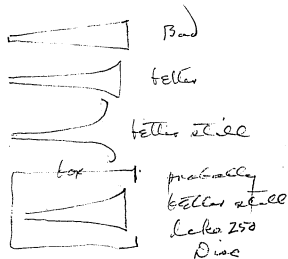 Bad
better
better still
box
probably
better still
Disc